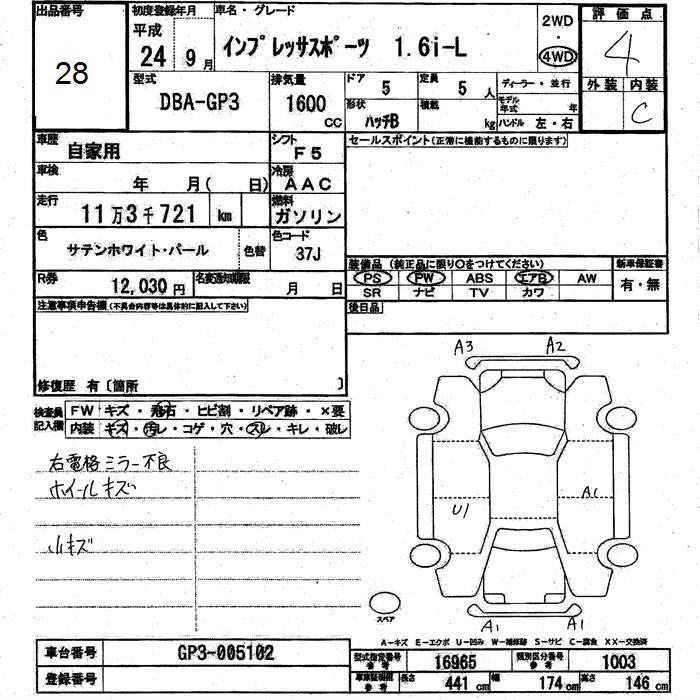 出品番号
28
初度登録年月
平成
24 9月
車名・グレード
インプレッサスポーツ 1.6i-L
2WD
・
4WD
評価点
4
外装 内装
C
型式
DBA-GP3
排気量
1600
CC
ドア
5
定員
5人
形状
ハッチB
積載
kg
ディーラー・並行
モデル年式 年
ハンドル 左・右
車歴
自家用
シフト
F5
セールスポイント(正常に機能するものに限ります)
車検
年 月( 日)
冷房
AAC
走行
11万3千721 km
燃料
ガソリン
色
サテンホワイト・パール
色替
色コード
37J
装備品 (純正品に限り○をつけてください)
新車保証書
PS PW ABS エアB AW
SR ナビ TV カワ
有・無
R券
12,030円
名変通知期限
月 日
後日品
注意事項申告欄(不具合内容等は具体的に記入して下さい)
修復歴 有〔箇所 〕
検査員記入欄
FW キズ・飛石・ヒビ割・リペア跡・×要
内装 キズ・汚レ・コゲ・穴・スレ・キレ・破レ
右電格ミラー不良
ホイールキズ
小キズ
A3
A2
U1
A1
A1
A1
スペア
A-キズ E-エクボ U-凹み W-補修跡 S-サビ C-腐食 XX-交換済
車台番号
GP3-005102
登録番号
型式指定番号
参考
16965
類別区分番号
参考
1003
車車証記載
参考
長さ
441cm
幅
174cm
高さ
146cm